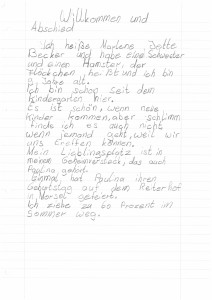 Willkommen und
Abschied
Ich heiße Marlene Jette
Becker und habe eine Schwester
und einen Hamster, der
Flöckchen heißt und ich bin
8 Jahre alt.
Ich bin schon seit dem
Kindergarten hier.
Es ist schön, wenn neue
Kinder kommen, aber schlimm
finde ich es auch nicht
wenn jemand geht, weil wir
uns treffen können.
Mein Lieblingsplatz ist in
meinem Geheimversteck, das auch
Paulina gehört.
Einmal, hat Paulina ihren
Geburtstag auf dem Reiterhof
in gefeiert.
Ich ziehe zu 60 Prozent im
Sommer weg.